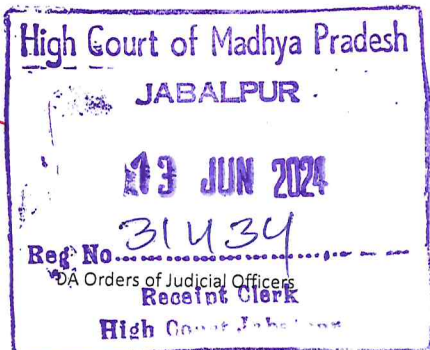 High Court of Madhya Pradesh
JABALPUR
13 JUN 2024
Reg No. 31434
DA Orders of Judicial Officers
Receipt Clerk
High Court